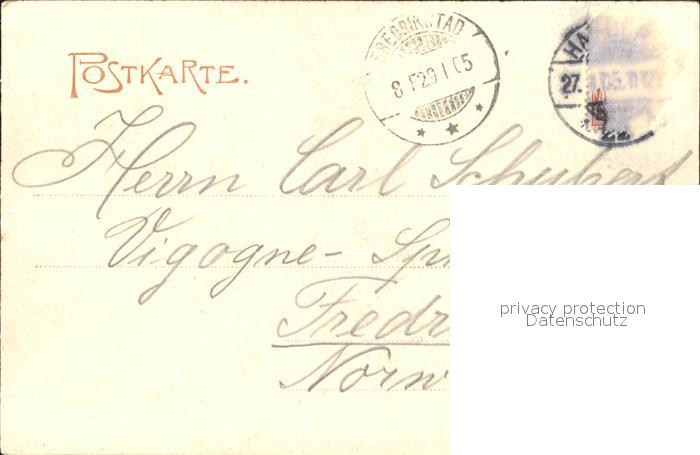 POSTKARTE.
FREDRIKSTAD
8 F 29 I 05
27.
Herrn Carl Schubert
Vigogne- Sp
Fredr
Norw
privacy protection
Datenschutz